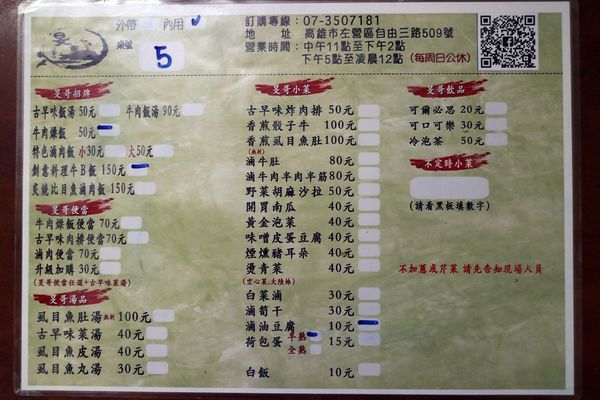 外帶 內用
桌號 5
訂購專線：07-3507181
地 址 高雄市左營區自由三路509號
營業時間：中午11點至下午2點
下午5點至凌晨12點 (每周日公休)
旻哥招牌
古早味飯湯50元 牛肉飯湯90元
牛肉燥飯 50元
特色滷肉飯 小30元 大50元
創意料理牛B飯 150元
炙燒比目魚滷肉飯150元
旻哥便當
牛肉燥飯便當70元
古早味肉排便當70元
滷肉便當 70元
升級加購 30元
(旻哥便當任選+古早味菜湯)
旻哥湯品
虱目魚肚湯 無刺 100元
古早味菜湯 40元
虱目魚皮湯 40元
虱目魚丸湯 30元
旻哥小菜
古早味炸肉排 50元
香煎骰子牛 100元
香煎虱目魚肚100元
(無刺)
滷牛肚 80元
滷牛肉半肉半筋80元
野菜胡麻沙拉 50元
開胃南瓜 40元
黃金泡菜 40元
味噌皮蛋豆腐 40元
煙燻豬耳朵 40元
燙青菜 40元
(空心菜.大陸妹)
白菜滷 30元
滷筍干 30元
滷油豆腐 10元
荷包蛋 半熟 15元
全熟
白飯 10元
旻哥飲品
可爾必思 20元
可口可樂 30元
冷泡茶 50元
不定時小菜
(請看黑板填數字)
不加蔥或芹菜 請先告知現場人員